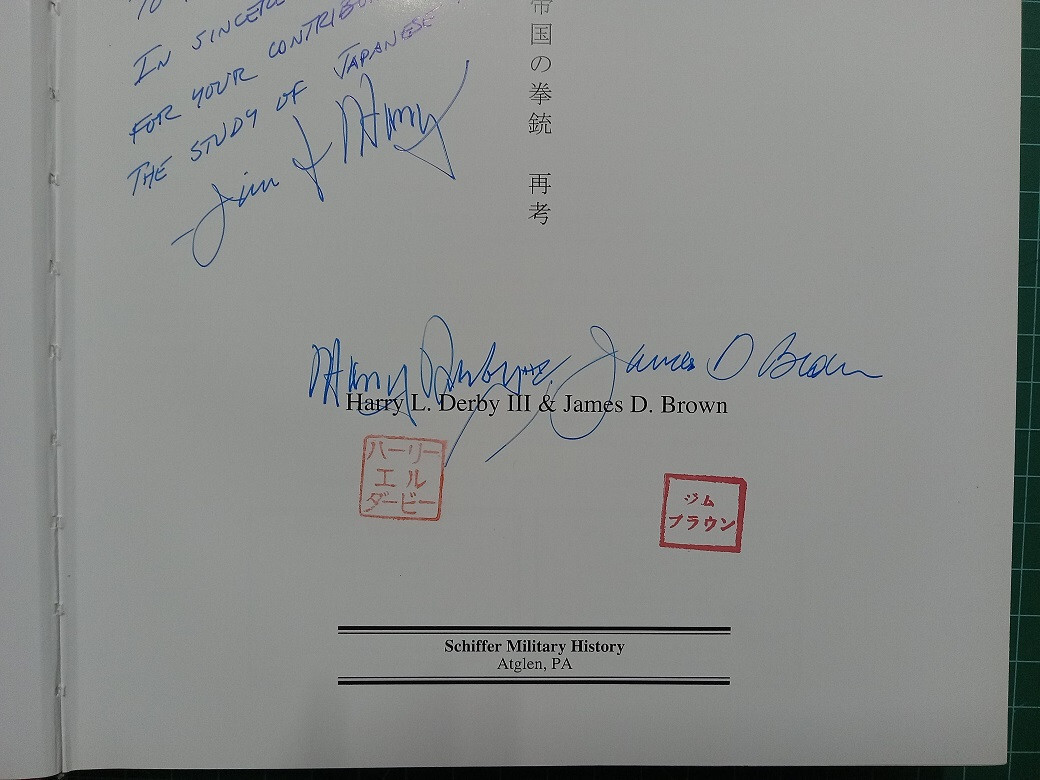 TO
IN SINCERE
FOR YOUR CONTRIBU
THE STUDY OF JAPANESE
Jim & Harry
帝国の拳銃 再考
Harry Derby III James D Brown
Harry L. Derby III & James D. Brown
ハーリー
エル
ダービー
ジム
ブラウン
Schiffer Military History
Atglen, PA